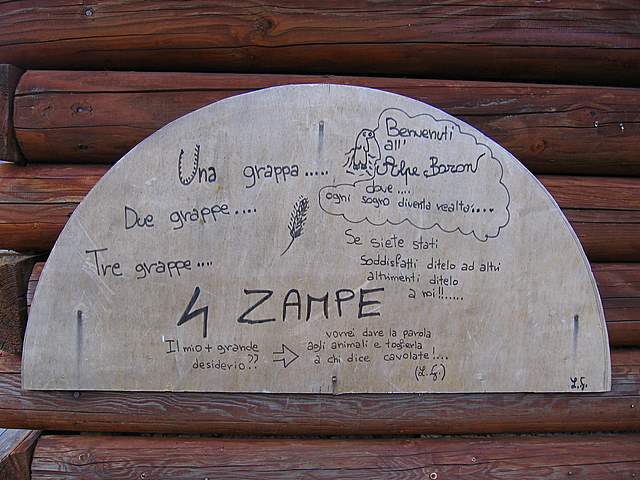 Una grappa.....
Due grappe....
Tre grappe....
4 ZAMPE
Benvenuti
all'
Alpe Baron
dove....
ogni sogno diventa realtà....
Se siete stati
Soddisfatti ditelo ad altri
altrimenti ditelo
a noi!!......
Il mio + grande
desiderio??
vorrei dare la parola
agli animali e toglierla
a chi dice cavolate!...
(L.G.)
L.G.